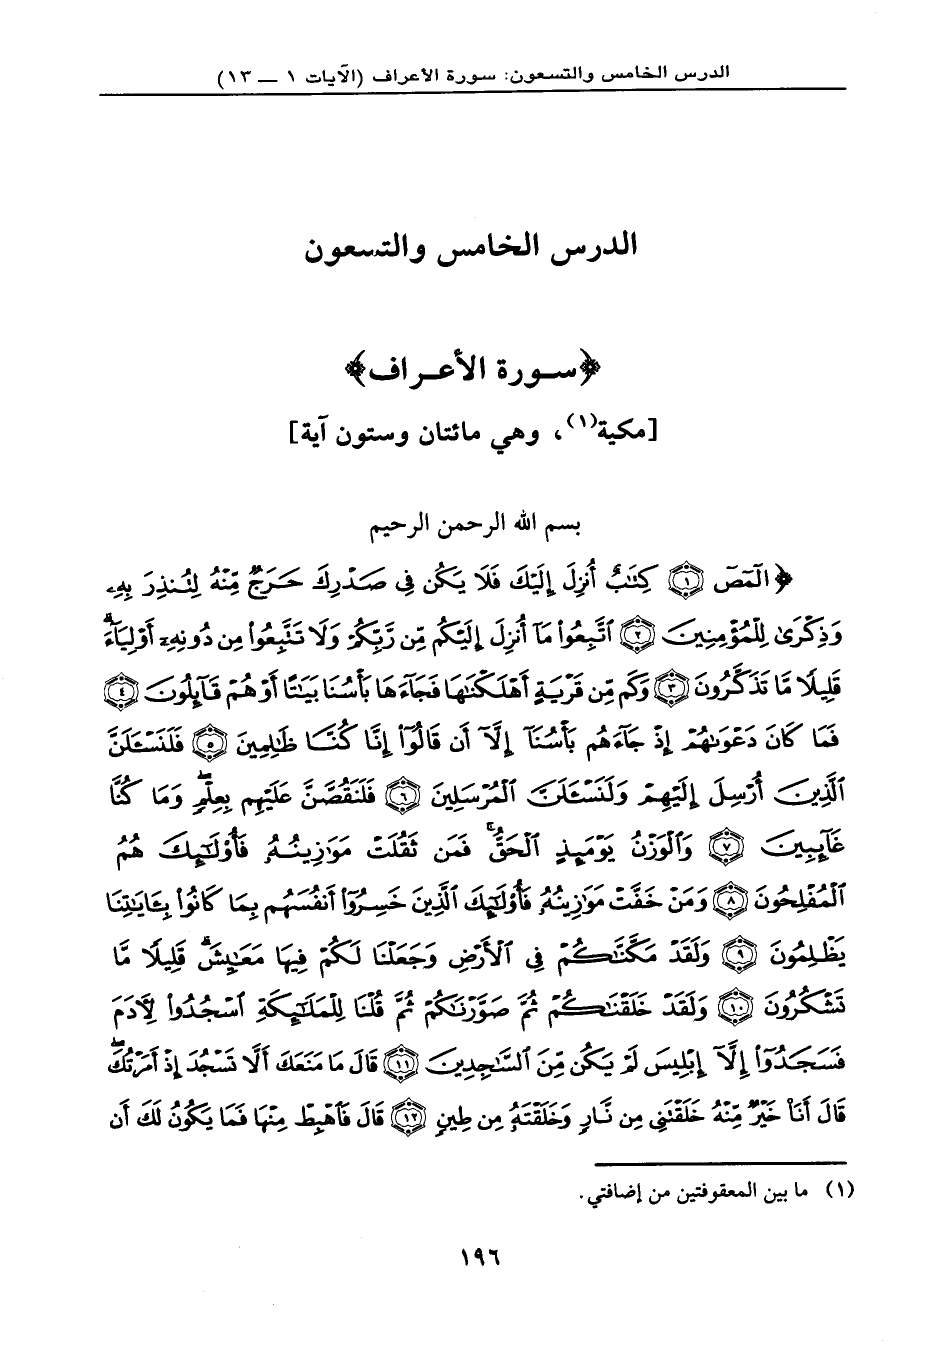 الدرس الخامس والتسعون: سورة الأعراف (الآيات ١ — ١٣)
الدرس الخامس والتسعون
﴿سـورة الأعـراف﴾
[مكية(١)، وهي مائتان وستون آية]
بسم الله الرحمن الرحيم
﴿الٓمٓصٓ ١ كِتَٰبٌ أُنزِلَ إِلَيْكَ فَلَا يَكُن فِى صَدْرِكَ حَرَجٌ مِّنْهُ لِتُنذِرَ بِهِۦ
وَذِكْرَىٰ لِلْمُؤْمِنِينَ ٢ ٱتَّبِعُوا۟ مَآ أُنزِلَ إِلَيْكُم مِّن رَّبِّكُمْ وَلَا تَتَّبِعُوا۟ مِن دُونِهِۦٓ أَوْلِيَآءَ ۗ
قَلِيلًا مَّا تَذَكَّرُونَ ٣ وَكَم مِّن قَرْيَةٍ أَهْلَكْنَٰهَا فَجَآءَهَا بَأْسُنَا بَيَٰتًا أَوْ هُمْ قَآئِلُونَ ٤
فَمَا كَانَ دَعْوَىٰهُمْ إِذْ جَآءَهُم بَأْسُنَآ إِلَّآ أَن قَالُوٓا۟ إِنَّا كُنَّا ظَٰلِمِينَ ٥ فَلَنَسْـَٔلَنَّ
ٱلَّذِينَ أُرْسِلَ إِلَيْهِمْ وَلَنَسْـَٔلَنَّ ٱلْمُرْسَلِينَ ٦ فَلَنَقُصَّنَّ عَلَيْهِم بِعِلْمٍ ۖ وَمَا كُنَّا
غَآئِبِينَ ٧ وَٱلْوَزْنُ يَوْمَئِذٍ ٱلْحَقُّ ۚ فَمَن ثَقُلَتْ مَوَٰزِينُهُۥ فَأُو۟لَٰٓئِكَ هُمُ
ٱلْمُفْلِحُونَ ٨ وَمَنْ خَفَّتْ مَوَٰزِينُهُۥ فَأُو۟لَٰٓئِكَ ٱلَّذِينَ خَسِرُوٓا۟ أَنفُسَهُم بِمَا كَانُوا۟ بِـَٔايَٰتِنَا
يَظْلِمُونَ ٩ وَلَقَدْ مَكَّنَّٰكُمْ فِى ٱلْأَرْضِ وَجَعَلْنَا لَكُمْ فِيهَا مَعَٰيِشَ ۗ قَلِيلًا مَّا
تَشْكُرُونَ ١٠ وَلَقَدْ خَلَقْنَٰكُمْ ثُمَّ صَوَّرْنَٰكُمْ ثُمَّ قُلْنَا لِلْمَلَٰٓئِكَةِ ٱسْجُدُوا۟ لِـَٔادَمَ
فَسَجَدُوٓا۟ إِلَّآ إِبْلِيسَ لَمْ يَكُن مِّنَ ٱلسَّٰجِدِينَ ١١ قَالَ مَا مَنَعَكَ أَلَّا تَسْجُدَ إِذْ أَمَرْتُكَ ۖ
قَالَ أَنَا۠ خَيْرٌ مِّنْهُ خَلَقْتَنِى مِن نَّارٍ وَخَلَقْتَهُۥ مِن طِينٍ ١٢ قَالَ فَٱهْبِطْ مِنْهَا فَمَا يَكُونُ لَكَ أَن
(١) ما بين المعقوفتين من إضافتي.
١٩٦